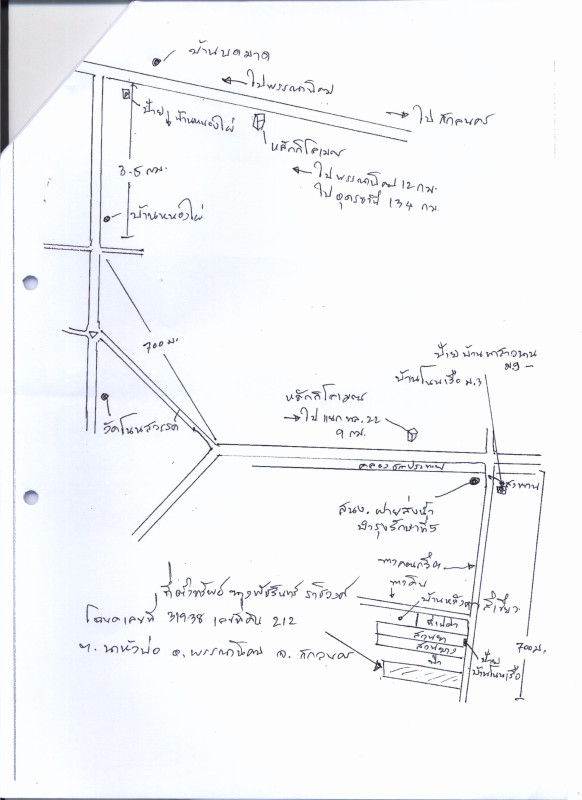 บ้านบดมาด
← ไปพรรณานิคม
→ ไป สกลนคร
ป้าย บ้านหนองไผ่
หลักกิโลเมตร
← ไปพรรณานิคม 12 กม.
ไปอุดรธานี 134 กม.
3.5 กม.
บ้านหนองไผ่
700 ม.
วัดโนนสวรรค์
หลักกิโลเมตร
→ ไปแยก ทล.22
9 กม.
ม.9
บ้านโนนเรือ ม.3
คลองชลประทาน
สะพาน
สนง. ฝายส่งน้ำ
บำรุงรักษาที่5
ทางคอนกรีต
ทางดิน
บ้านหลังคาสีเขียว
ที่ตั้งทรัพย์
โฉนดเลขที่ 31938 เลขที่ดิน 212
ต. นาหัวบ่อ อ. พรรณานิคม จ. สกลนคร
สวนยาง
ป่า
ป้าย
บ้านโนนเรือ
700 ม.